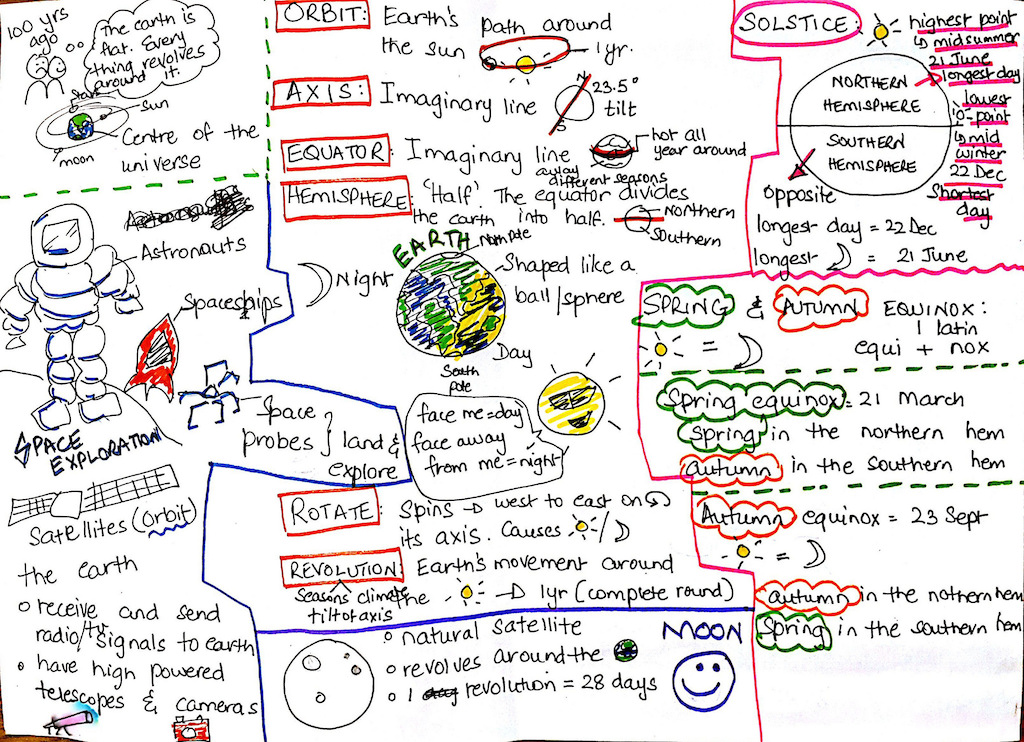 100 yrs
ago
The earth is
flat. Every
thing revolves
around it.
stars
sun
Centre of the
universe
moon
Astronauts
Spaceships
Space
probes } land &
explore
SPACE
EXPLORATION
Satellites (Orbit)
the earth
receive and send
radio/tv signals to earth
have high powered
telescopes & cameras
ORBIT: Earth's path around
the sun 1yr.
AXIS: Imaginary line N 23.5°
tilt
S
EQUATOR: Imaginary line hot all
year around
away
different seasons
HEMISPHERE: 'Half'. The equator divides
the earth into half. Northern
Southern
EARTH
North Pole
Night
Shaped like a
ball/sphere
Day
South
pole
face me=day
face away
from me=night
ROTATE: Spins → west to east on
its axis. Causes /
REVOLUTION: Earth's movement around
the → 1yr (complete round)
seasons climate
tilt of axis
natural satellite
revolves around the
1 revolution = 28 days
MOON
SOLSTICE: highest point
↳ midsummer
21 June
longest day
NORTHERN
HEMISPHERE
SOUTHERN
HEMISPHERE
lowest
point
↳ mid
winter
22 Dec
Shortest
day
opposite
longest day = 22 Dec
longest = 21 June
SPRING & AUTUMN EQUINOX:
latin
= equi + nox
Spring equinox = 21 March
Spring in the northern hem
autumn in the southern hem
Autumn equinox = 23 Sept
=
autumn in the nothern hem
Spring in the southern hem